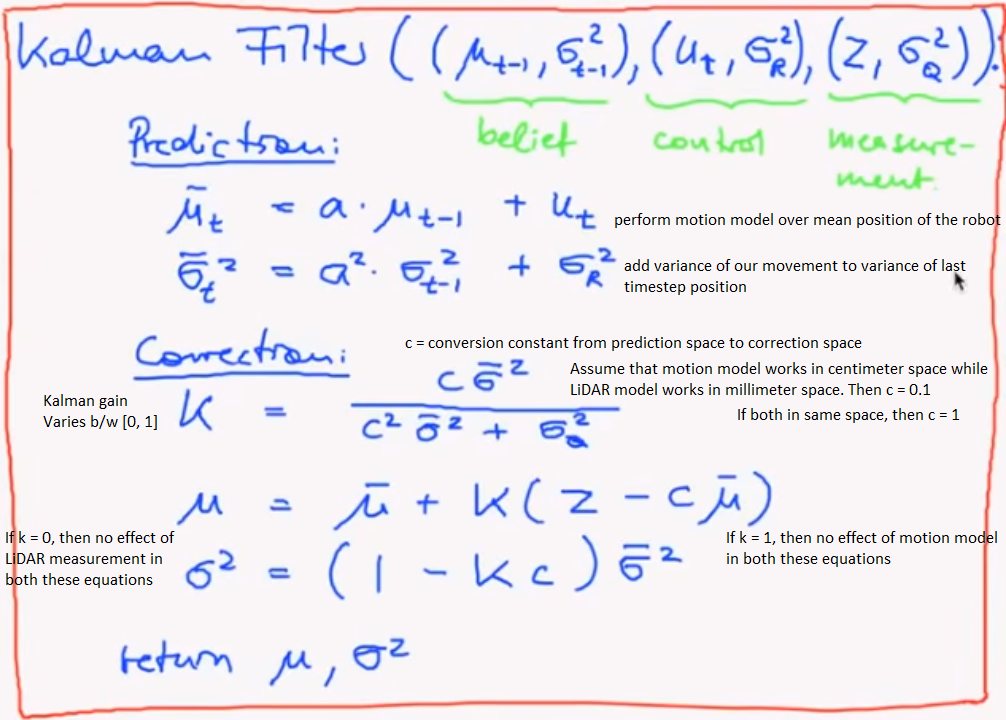 Kalman Filter ((μ_{t-1}, σ²_{t-1}), (u_t, σ_R²), (z, σ_Q²)):
belief control measure-
ment.
Prediction:
μ̄_t = a · μ_{t-1} + u_t perform motion model over mean position of the robot
σ̄_t² = a² · σ²_{t-1} + σ_R² add variance of our movement to variance of last
timestep position
Correction: c = conversion constant from prediction space to correction space
Assume that motion model works in centimeter space while
LiDAR model works in millimeter space. Then c = 0.1
If both in same space, then c = 1
Kalman gain
Varies b/w [0, 1]
K = c σ̄² / (c² σ̄² + σ_Q²)
μ = μ̄ + K(z - c μ̄)
If k = 0, then no effect of
LiDAR measurement in
both these equations
If k = 1, then no effect of motion model
in both these equations
σ² = (1 - K c) σ̄²
return μ, σ²